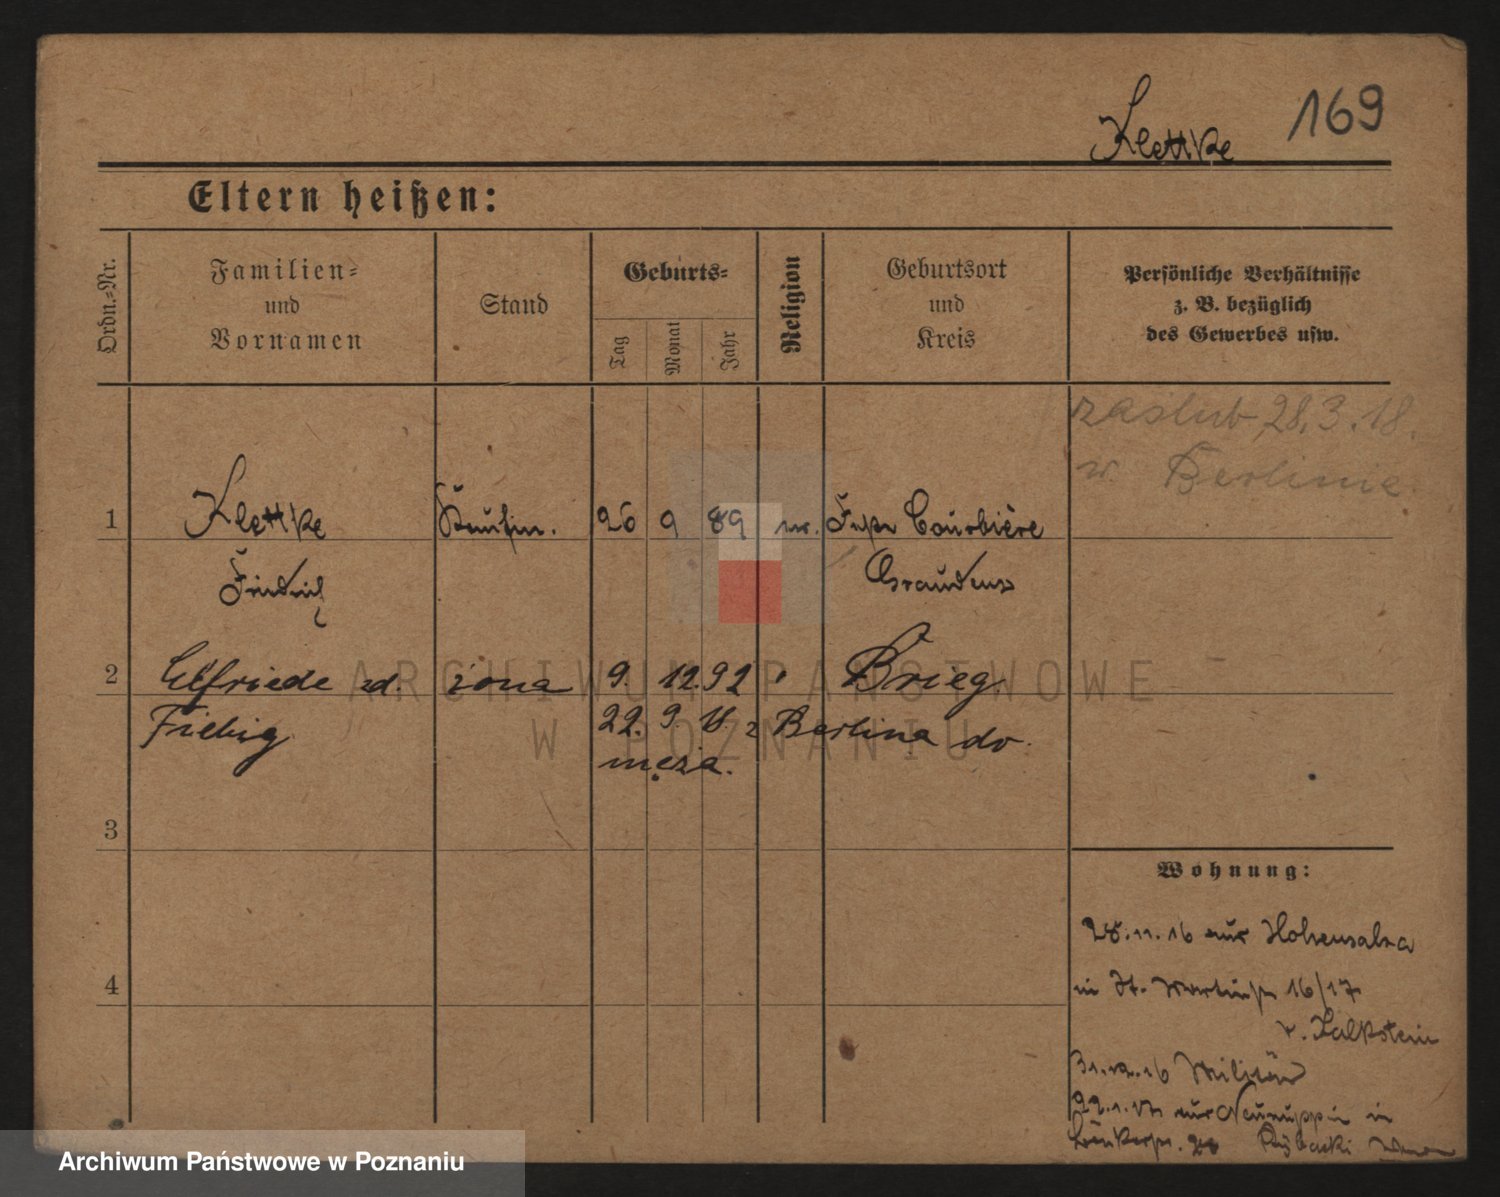 Klettke 169
Eltern heißen:
Ordn.-Nr.
Familien-
und
Vornamen
Stand
Geburts-
Tag
Monat
Jahr
Religion
Geburtsort
und
Kreis
Persönliche Verhältnisse
z. B. bezüglich
des Gewerbes usw.
zaslub. 28.3.18.
w Berlinie.
1 Klettke 26 9 89 Courbière
Friedrich Graudenz
2 Elfriede zd. żona 9. 12. 92 Brieg
Fiebig 22. 9. 18. z Berlina do
męża.
3
4
Wohnung:
28.11.16 aus Hohensalza
in St. Martinstr 16/17
v. Kalkstein
31.12.16 Militär
22.1.17 aus Neuruppin in
ARCHIWUM PAŃSTWOWE
W POZNANIU
Archiwum Państwowe w Poznaniu